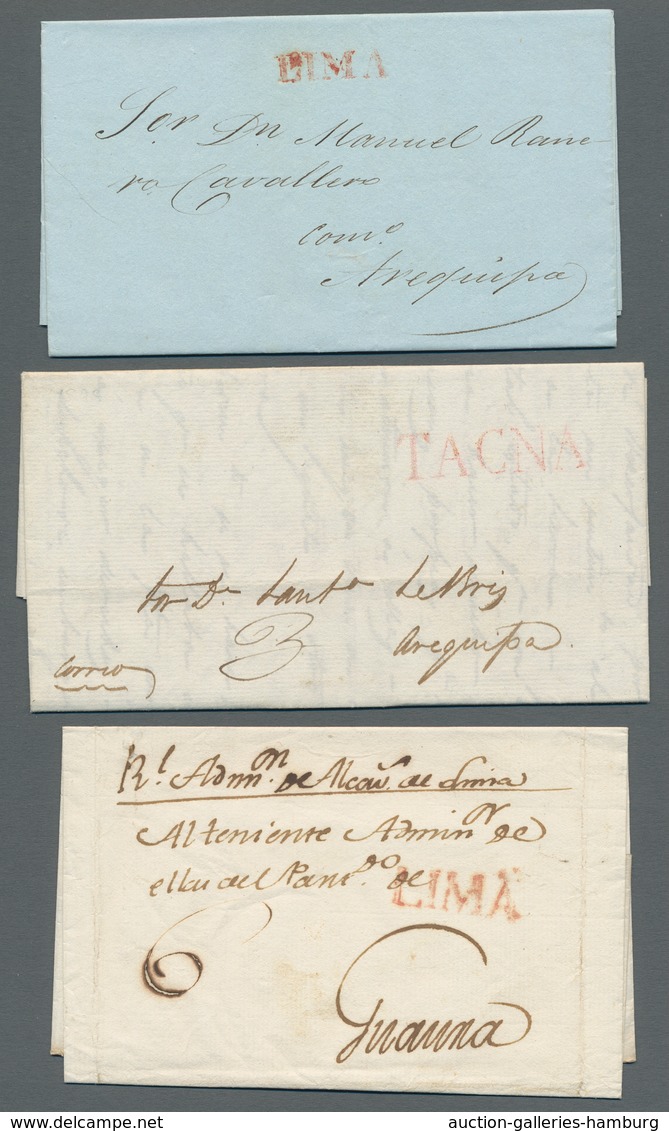 LIMA
Sor Dn Manuel Rane-
ro Cavallero
Como
Arequipa
TACNA
Sor Dn Santo Le Bris
3 Arequipa
Correo
Rl Admn. de Alcavs. de Lima
Al teniente Adminr de
ellas del Partdo. de
LIMA
6
delcampe.net
auction-galleries-hamburg